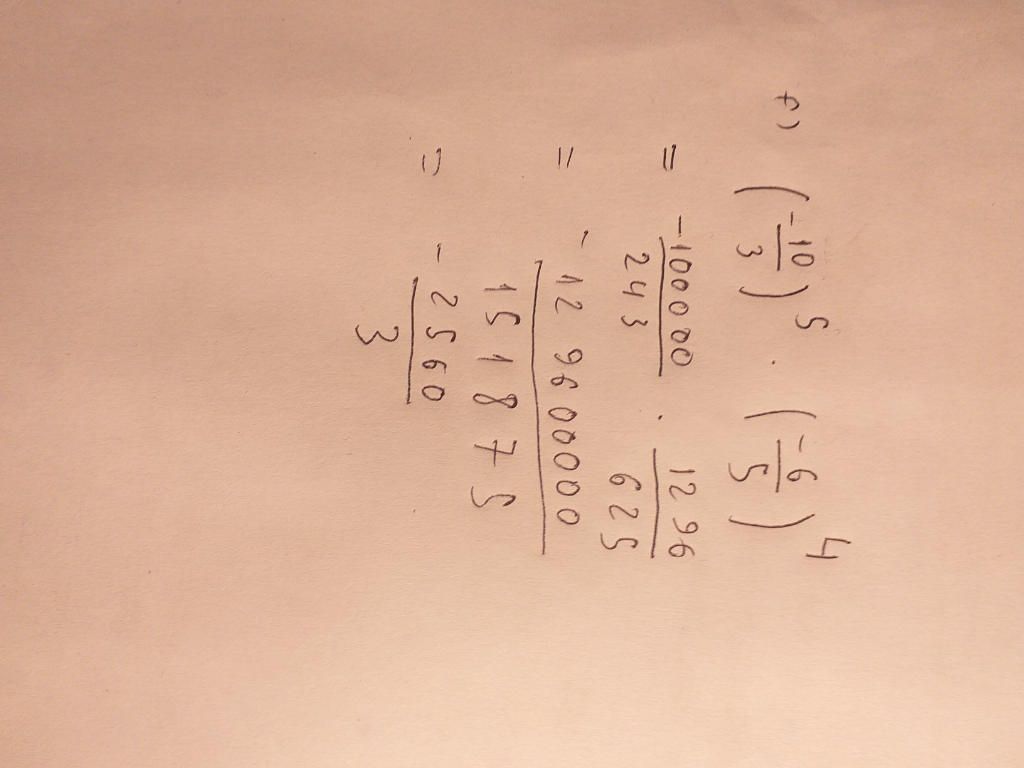 f) (-10/3)^5 · (-6/5)^4
= -100000/243 · 1296/625
= -129600000/151875
= -2560/3